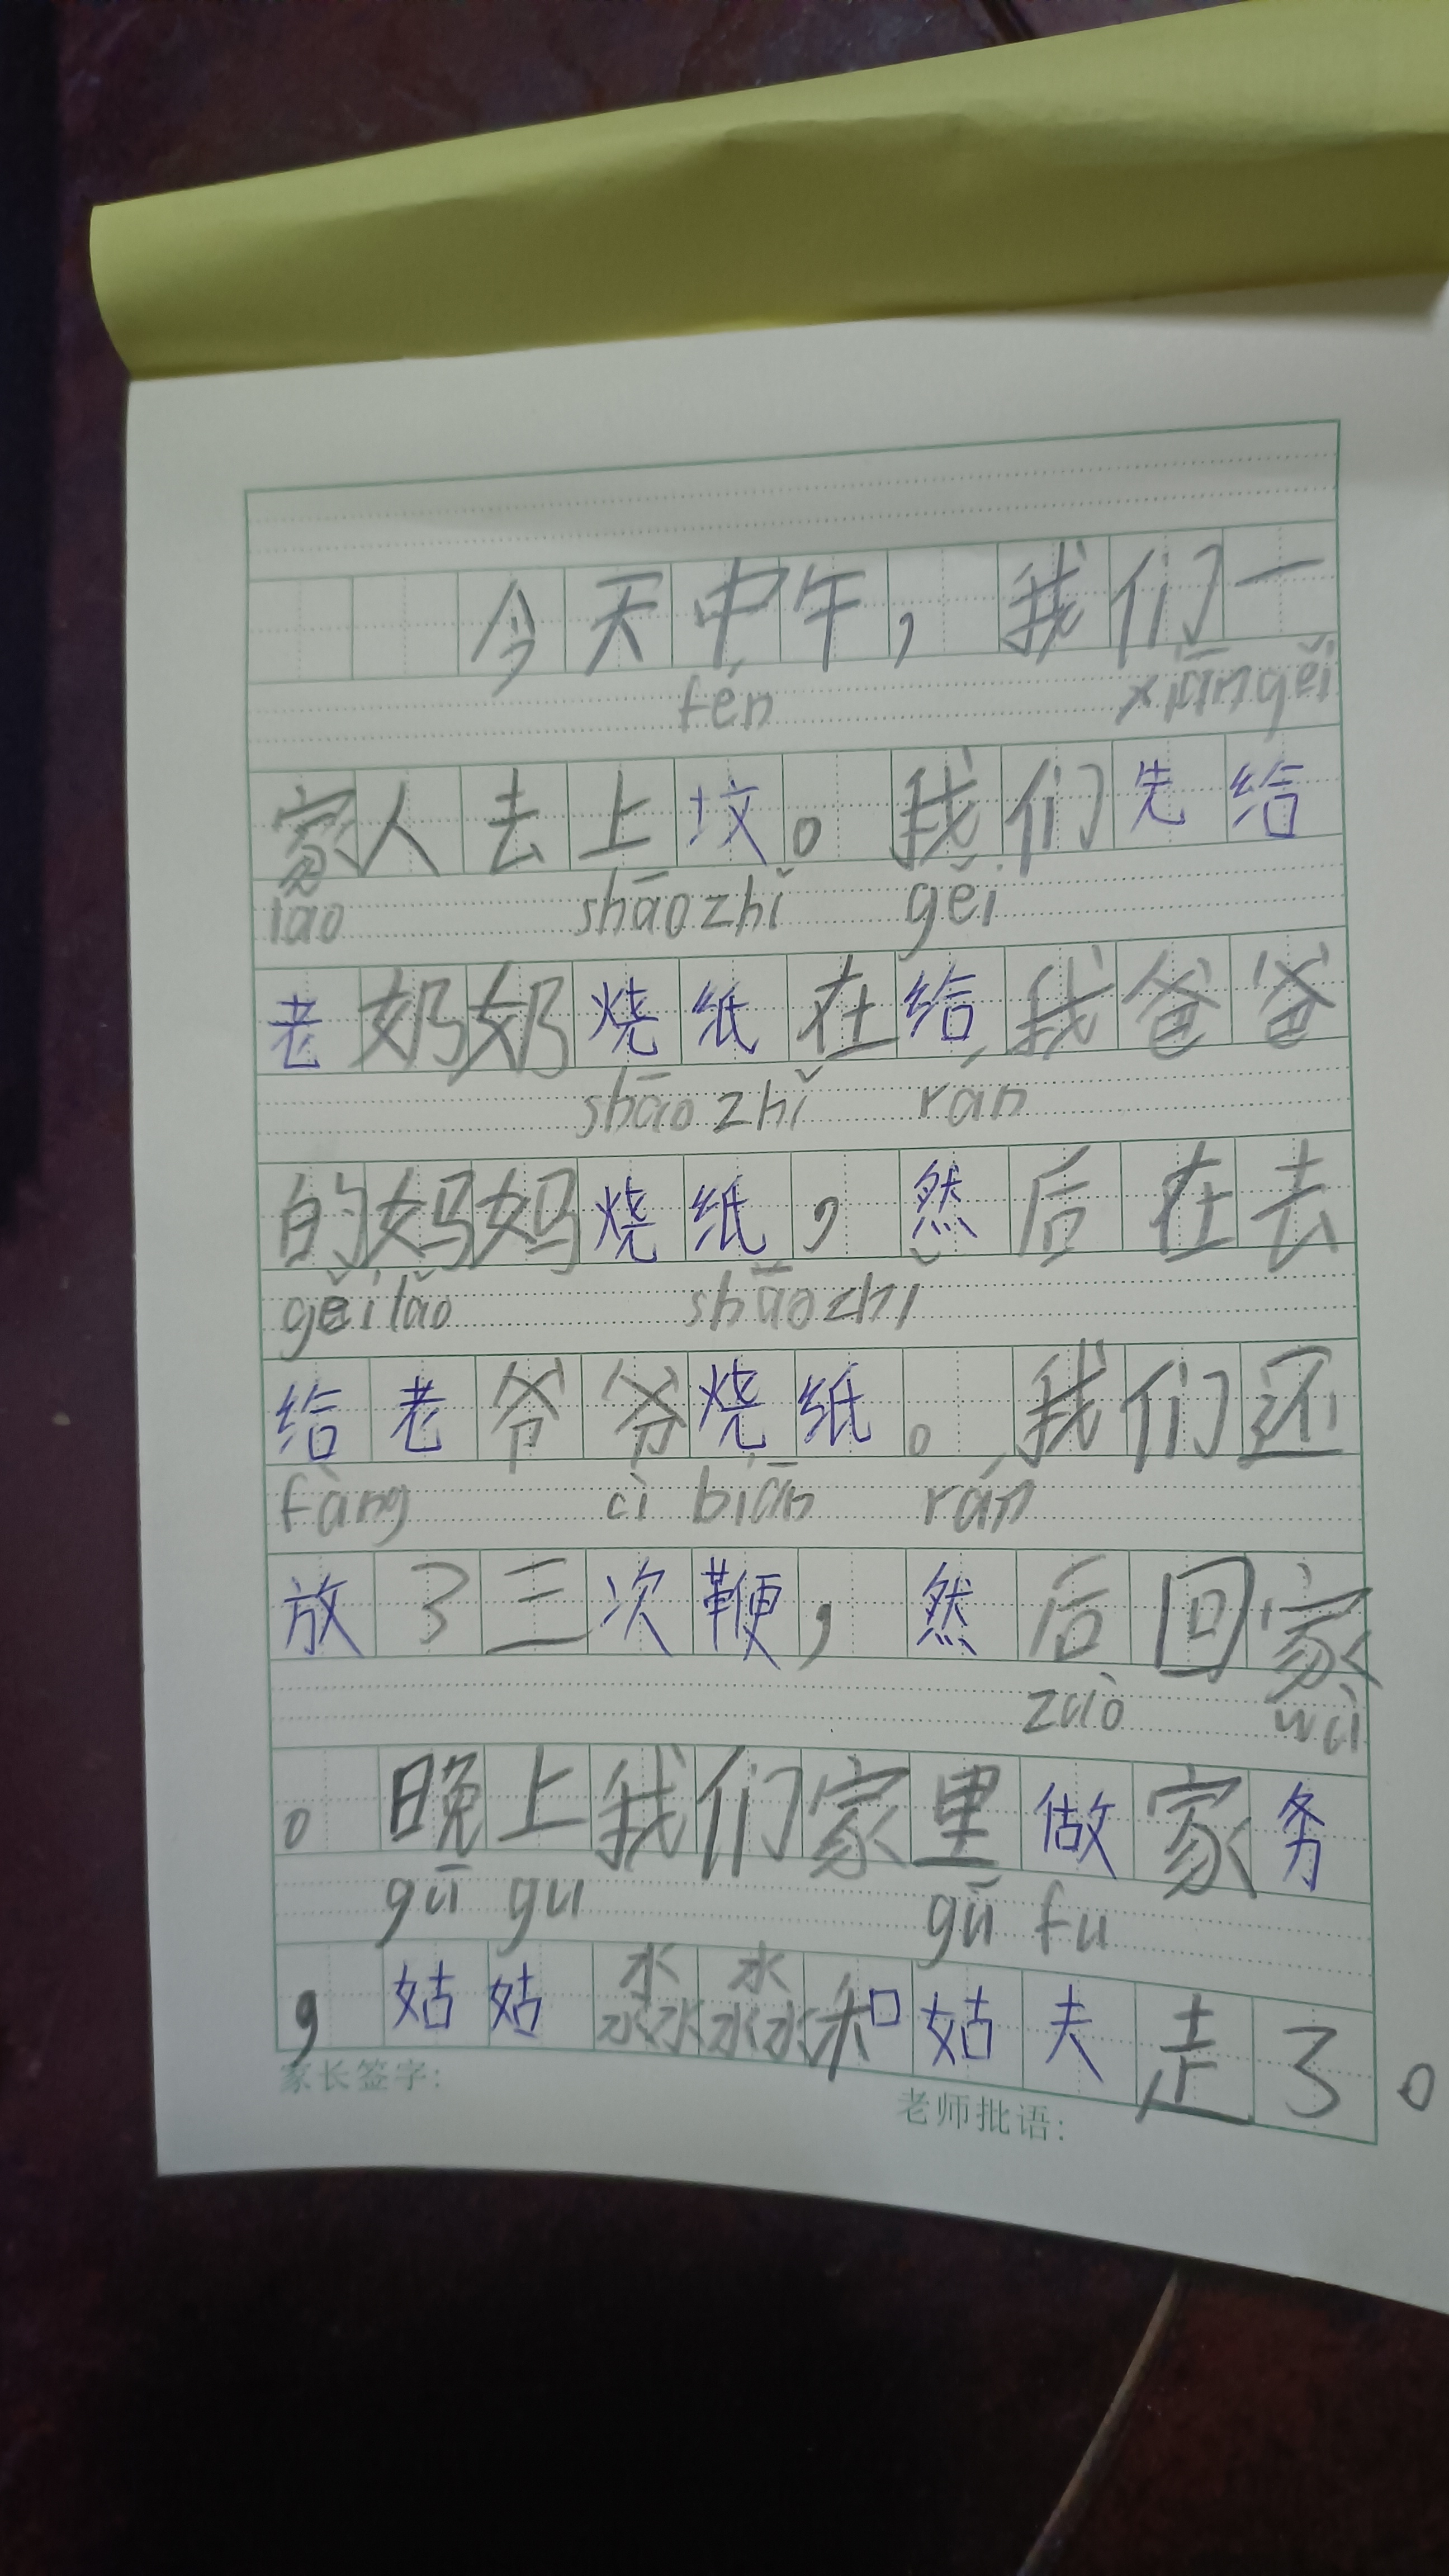 今天中午，我们一
fén xiān gěi
家人去上坟。我们先给
lǎo shāo zhǐ gěi
老奶奶烧纸在给我爸爸
shāo zhǐ rán
的妈妈烧纸，然后在去
gěi lǎo shāo zhǐ
给老爷爷烧纸。我们还
fàng cì biān rán
放了三次鞭，然后回家
zuò wù
。晚上我们家里做家务
gū gu gū fu
，姑姑淼淼和姑夫走了。
家长签字：
老师批语：